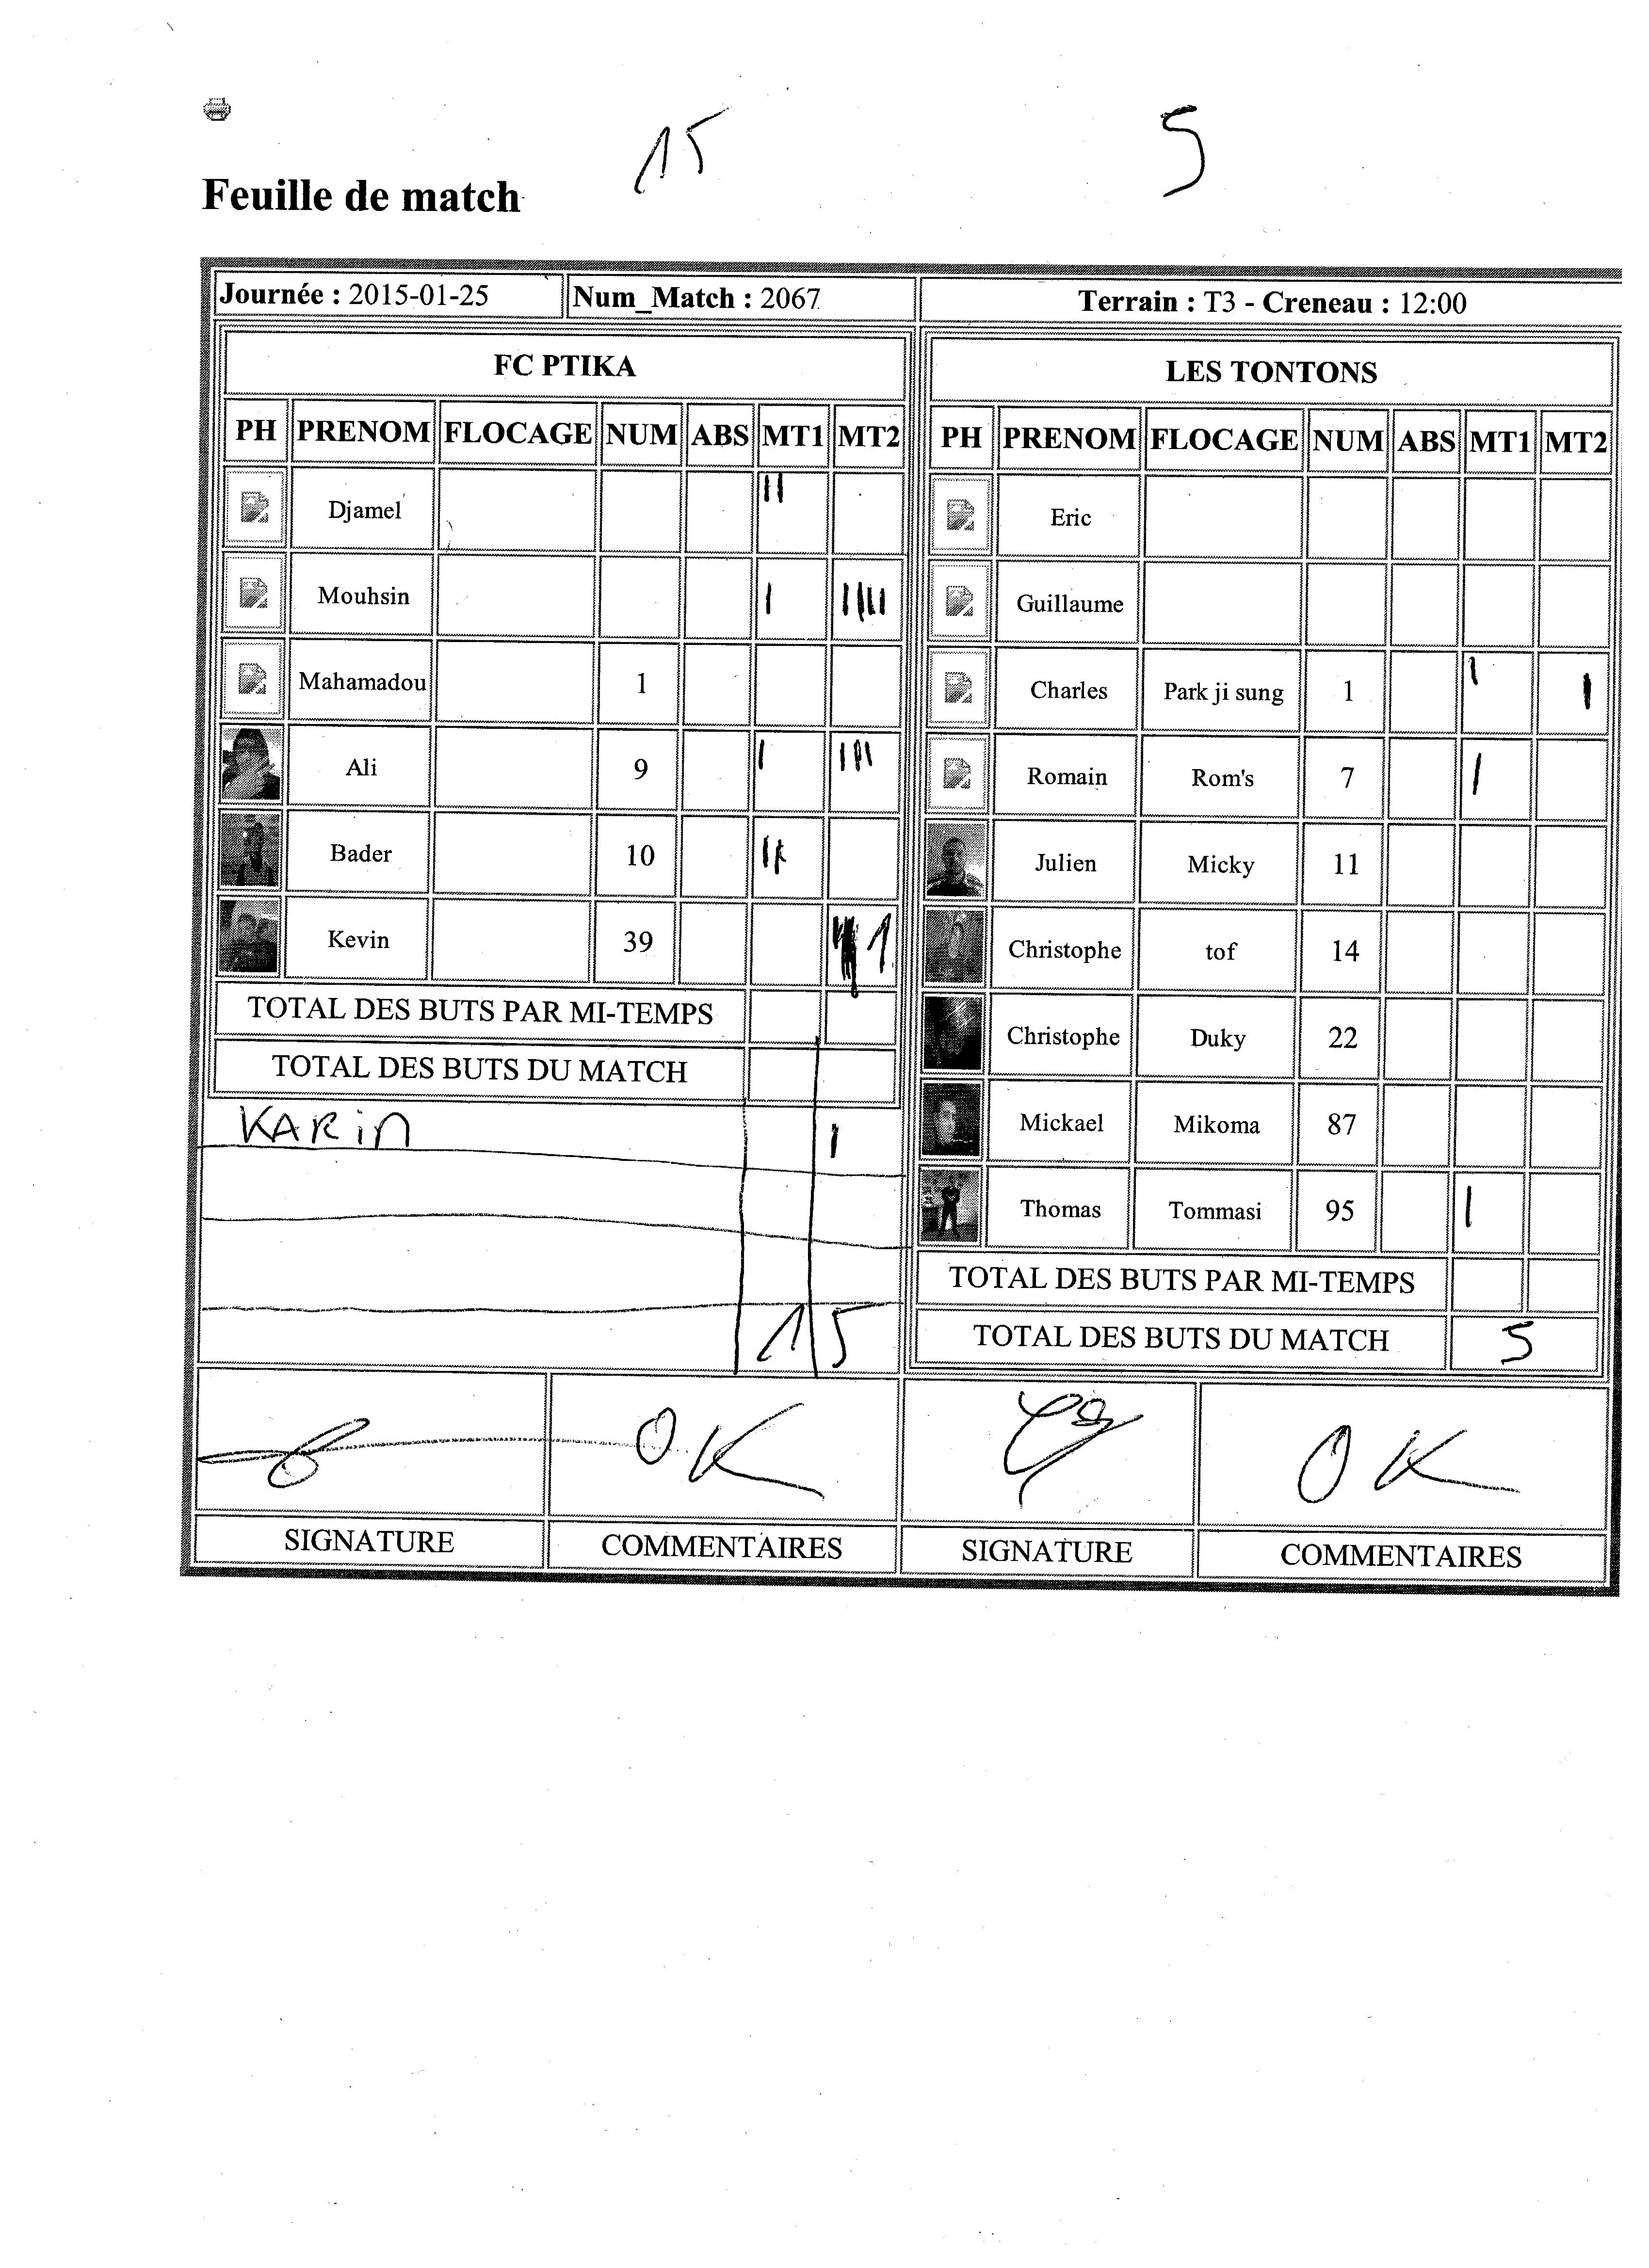 15 5
Feuille de match
Journée : 2015-01-25 Num_Match : 2067 Terrain : T3 - Creneau : 12:00
FC PTIKA
PH PRENOM FLOCAGE NUM ABS MT1 MT2
Djamel II
Mouhsin I IIII
Mahamadou 1
Ali 9 I III
Bader 10 II
Kevin 39 1
TOTAL DES BUTS PAR MI-TEMPS
TOTAL DES BUTS DU MATCH
KARin I
15
LES TONTONS
PH PRENOM FLOCAGE NUM ABS MT1 MT2
Eric
Guillaume
Charles Park ji sung 1 I I
Romain Rom's 7 I
Julien Micky 11
Christophe tof 14
Christophe Duky 22
Mickael Mikoma 87
Thomas Tommasi 95 I
TOTAL DES BUTS PAR MI-TEMPS
TOTAL DES BUTS DU MATCH 5
OK OK
SIGNATURE COMMENTAIRES SIGNATURE COMMENTAIRES